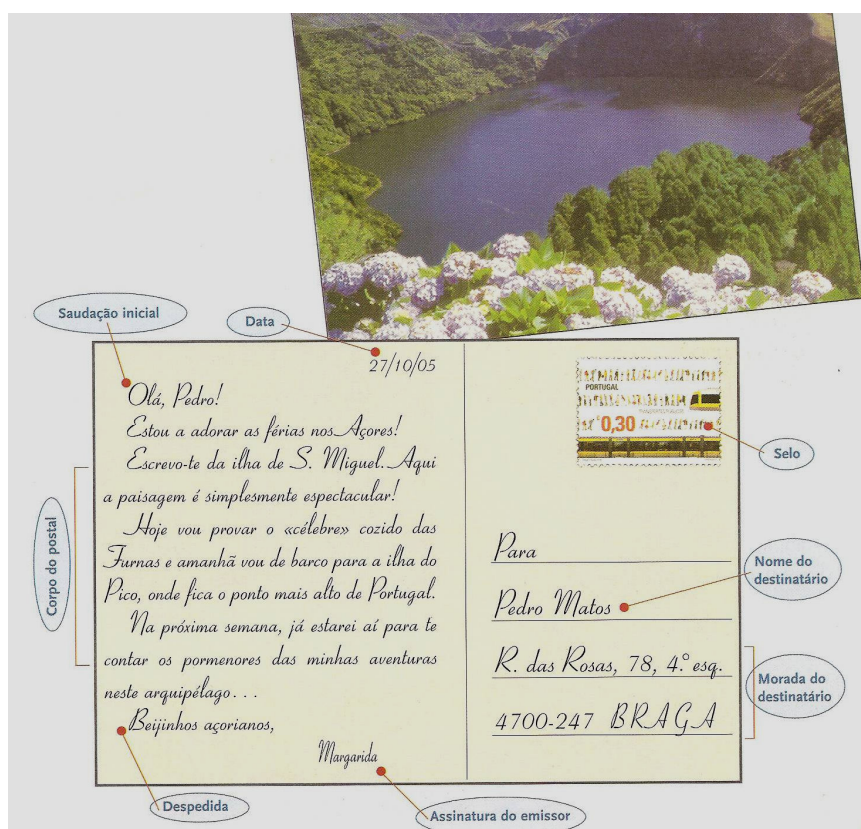 Saudação inicial
Data
27/10/05
Olá, Pedro!
Estou a adorar as férias nos Açores!
Escrevo-te da ilha de S. Miguel. Aqui
a paisagem é simplesmente espectacular!
Hoje vou provar o «célebre» cozido das
Furnas e amanhã vou de barco para a ilha do
Pico, onde fica o ponto mais alto de Portugal.
Na próxima semana, já estarei aí para te
contar os pormenores das minhas aventuras
neste arquipélago...
Beijinhos açorianos,
Margarida
Corpo do postal
Despedida
Assinatura do emissor
PORTUGAL
€0,30
Selo
Para
Pedro Matos
Nome do
destinatário
R. das Rosas, 78, 4.º esq.
4700-247 BRAGA
Morada do
destinatário